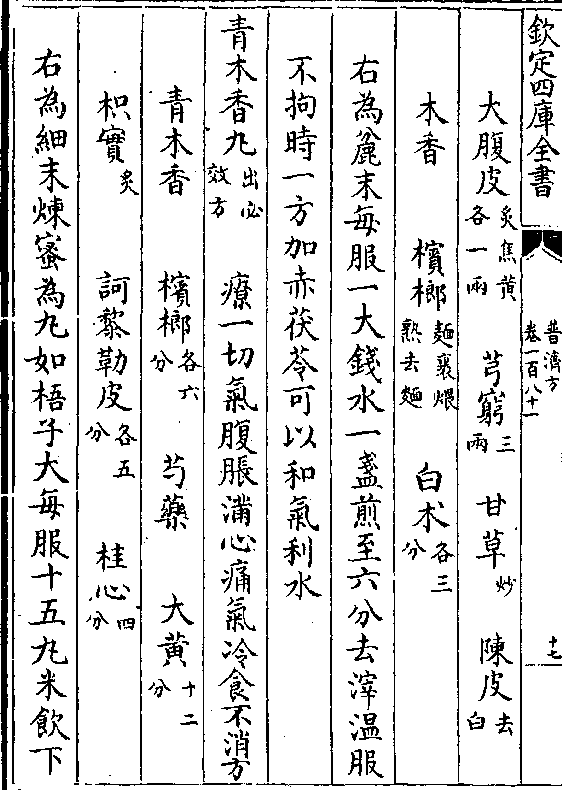 欽定四庫全書
普濟方 卷一百八十一
十七
大腹皮炙焦黄各一兩 芎窮三兩 甘草炒 陳皮去白
木香 檳榔麵裹煨熟去麵 白朮各三分
右為麄末每服一大錢水一盞煎至六分去滓溫服
不拘時一方加赤茯苓可以和氣利水
青木香丸出必效方 療一切氣腹脹滿心痛氣冷食不消方
青木香 檳榔各六分 芍藥 大黄十二分
枳實炙 訶黎勒皮各五分 桂心四分
右為細末煉蜜為丸如梧子大每服十五丸米飲下